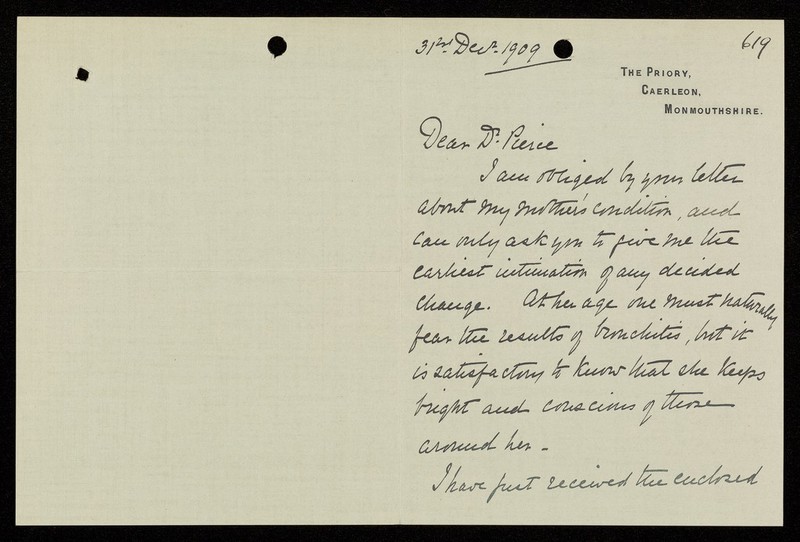 31st Decr. 1909
619
THE PRIORY,
CAERLEON,
MONMOUTHSHIRE.
Dear Dr. Pierce
I am obliged by your letter
about my mother's condition, and
can only ask you to give me the
earliest intimation of any decided
change. At her age one must naturally
fear the results of bronchitis, but it
is satisfactory to know that she keeps
bright and conscious of those
around her -
I have just received the enclosed